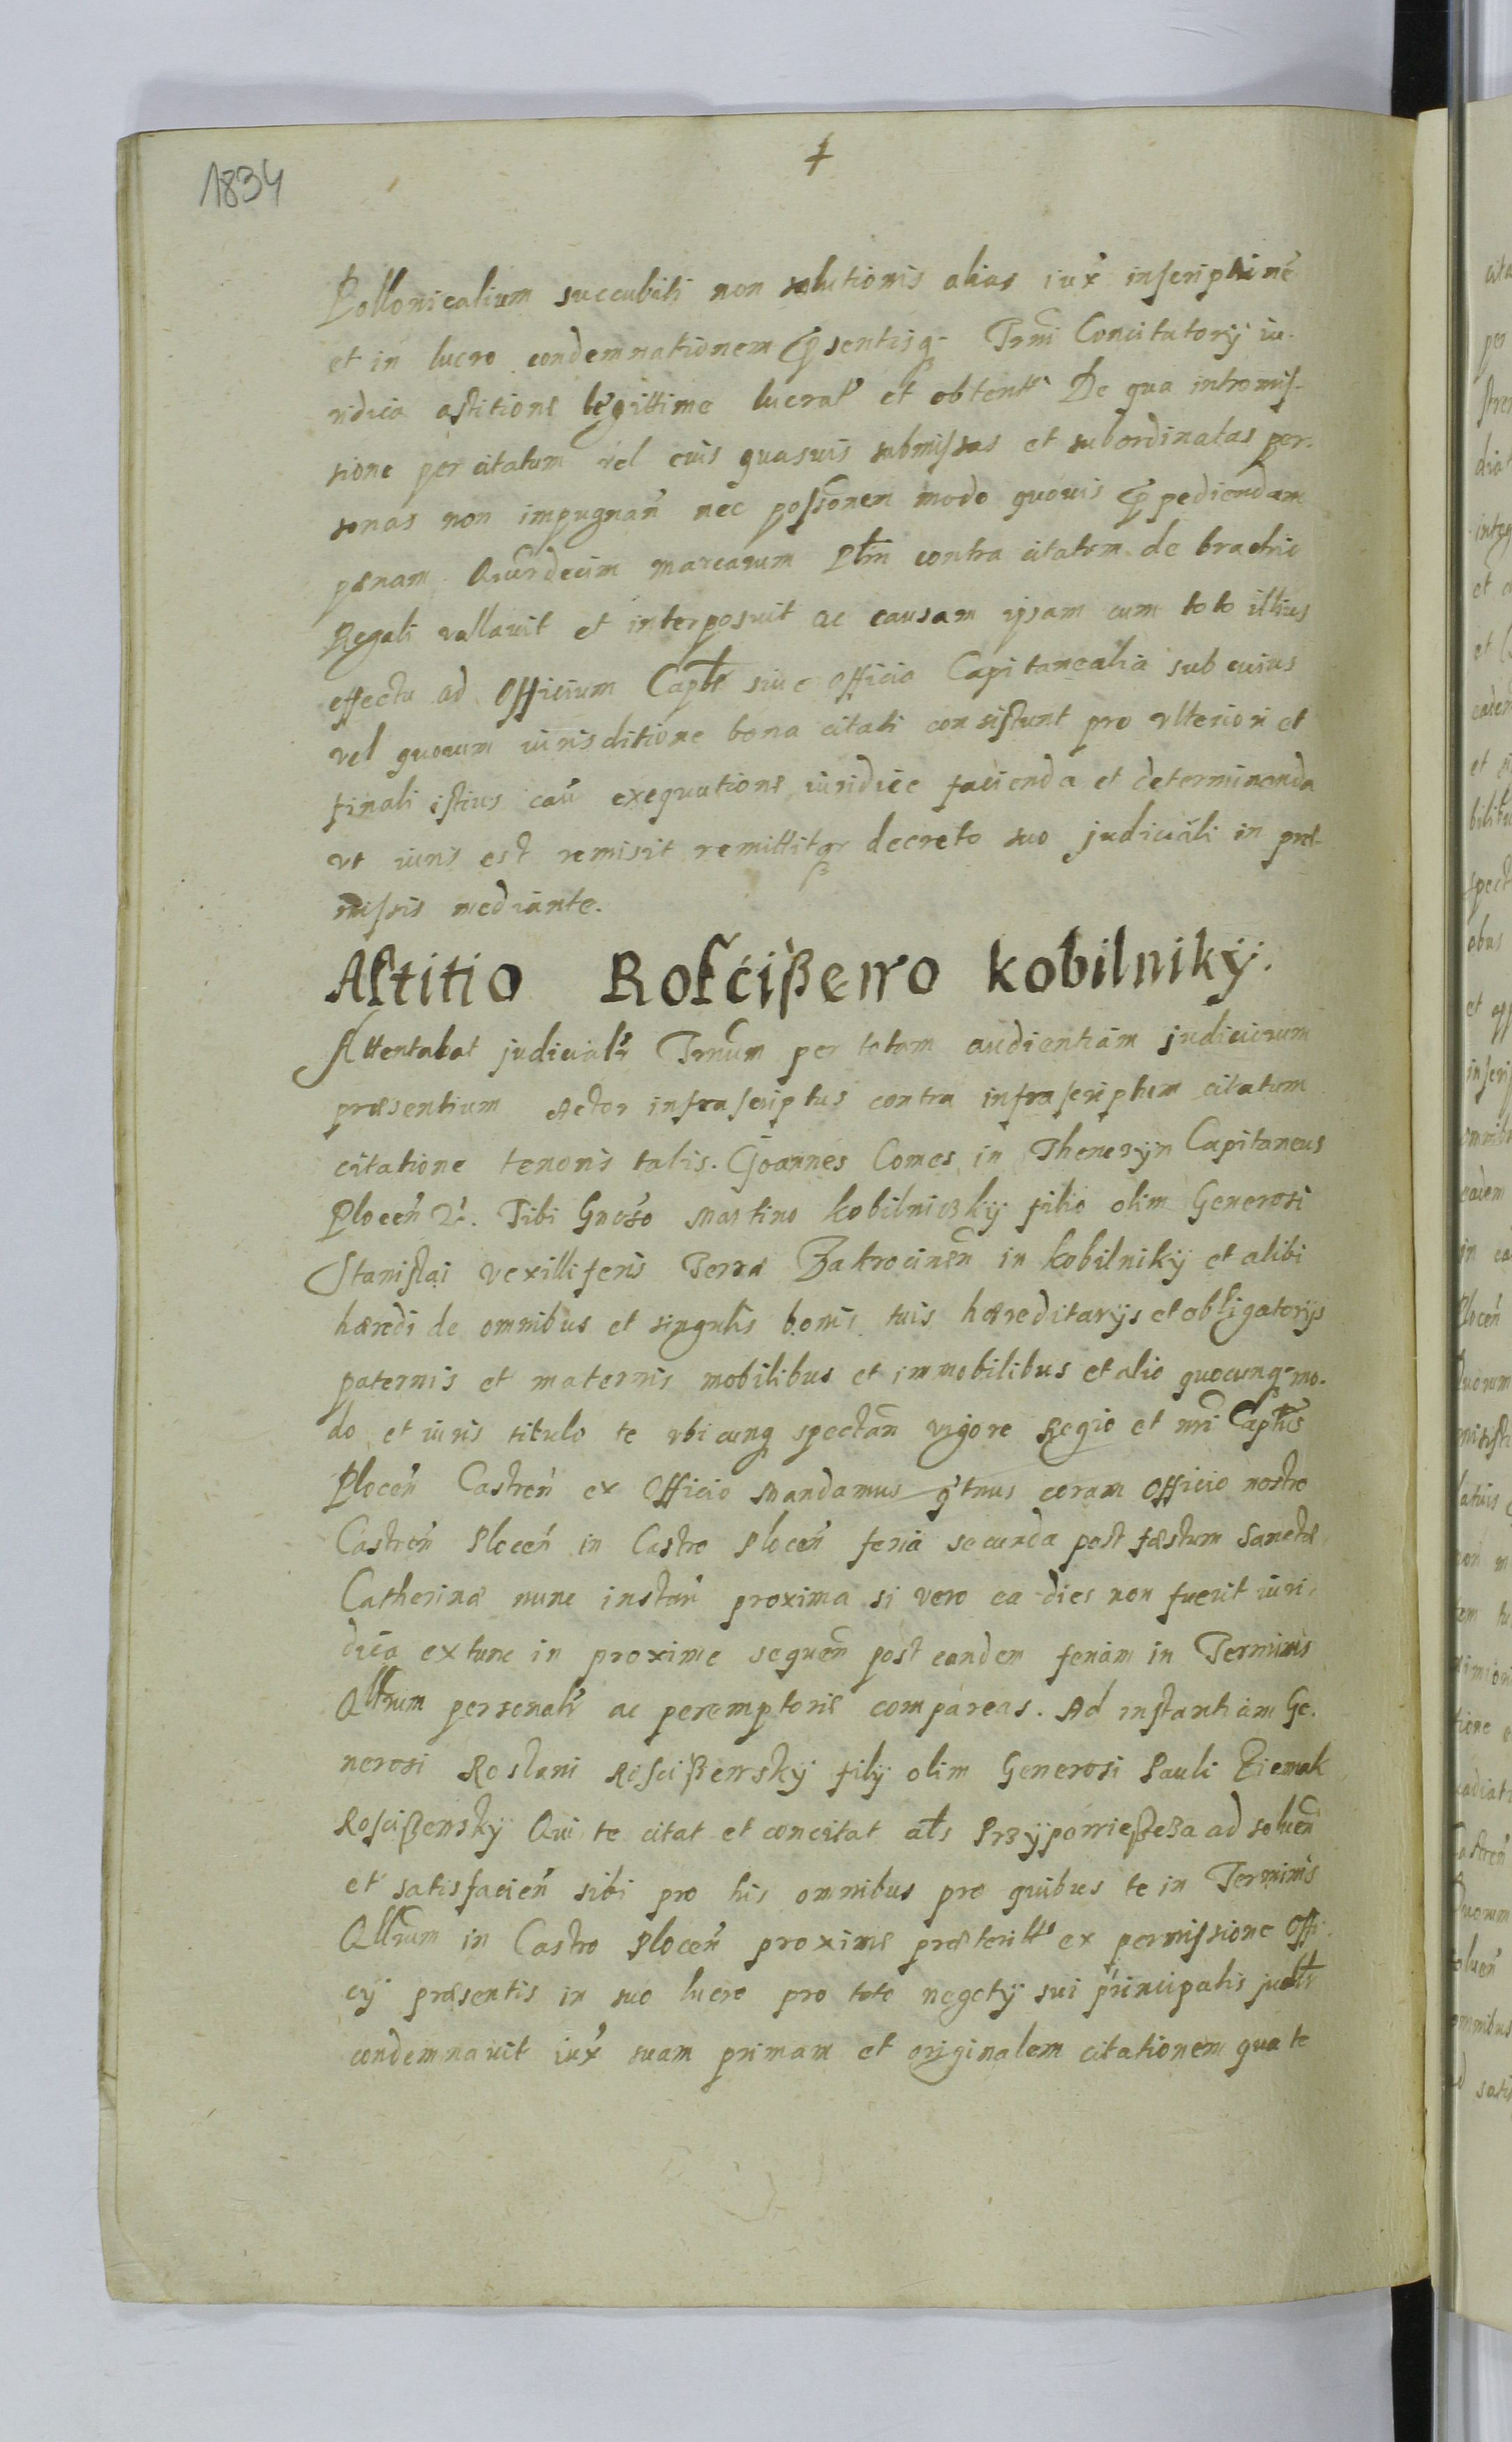 1834
†
Pollonicalium succubiti non solutionis alias iux̃ inscriptinẽ
et in lucro condemnationem p̃sentisq̃ Trm̃i Concitatorÿ iu-
ridica astitione legittime lucrat̃ et obtent̃ De qua intromis-
sione per citatum vel eius quasuis submissas et subordinatas per-
sonas non impugnañ nec possionen modo quouis p̃pediendam
pænam Quardecim marcarum Pl̃m contra citatum de brachio
Regali vallauit et interposuit ac causam ipsam cum toto illius
effectu ad Officium Captl̃e siue officia Capitanealia sub cuius
vel quorum iurisditione bona citati consistunt pro vlteriori et
finali istius caũ exequutione iuridice facienda et determinanda
vt iuris est remisit remittitqr̃ decreto suo judiciali in præ-
missis mediante.
Astitio Rosćißewo kobilnikÿ.
Attentabat judicialr̃ Trm̃um per totam audientiam judiciorum
præsentium Actor infrascriptus contra infrascriptum citatum
citatione tenoris talis. Joannes Comes in Thenczÿn Capitaneus
Ploceñ &. Tibi Gnõso Martino kobilniczkÿ filio olim Generosi
Stanislai vexilliferis Terræ Zakrocineñ in kobilnikÿ et alibi
hæredi de omnibus et singulis bonis tuis hæreditarÿs et obligatorÿs
paternis et maternis mobilibus et immobilibus et alio quocunq̃ mo-
do et iuris titulo te vbicunq̃ spectañ vigore Regio et nr̃i Captl̃is
Ploceñ Castreñ ex Officio Mandamus q̃tnus coram Officio nostro
Castreñ Ploceñ in Castro Ploceñ feria secunda post fæstum Sanctæ
Catherinæ nunc instañ proxima si vero ea dies non fuerit iuri-
dica extunc in proxime sequeñ post eandem feriam in Terminis
Qllr̃um personalr̃ ac peremptorie compareas. Ad instantiam Ge-
nerosi Roslani Rościßewskÿ filÿ olim Generosi Pauli Ziemak
Rosczißenskÿ Qui te citat et concitat al̃s Przÿpowießcza ad solueñ
et satisfacieñ sibi pro his omnibus pro quibus te in Terminis
Qllr̃um in Castro Ploceñ proxime præterit̃ ex permissione Offi-
cÿ præsentis in suo lucro pro toto negotÿ sui principalis judlr̃
condemnauit iux̃ suam primam et originalem citationem qua te